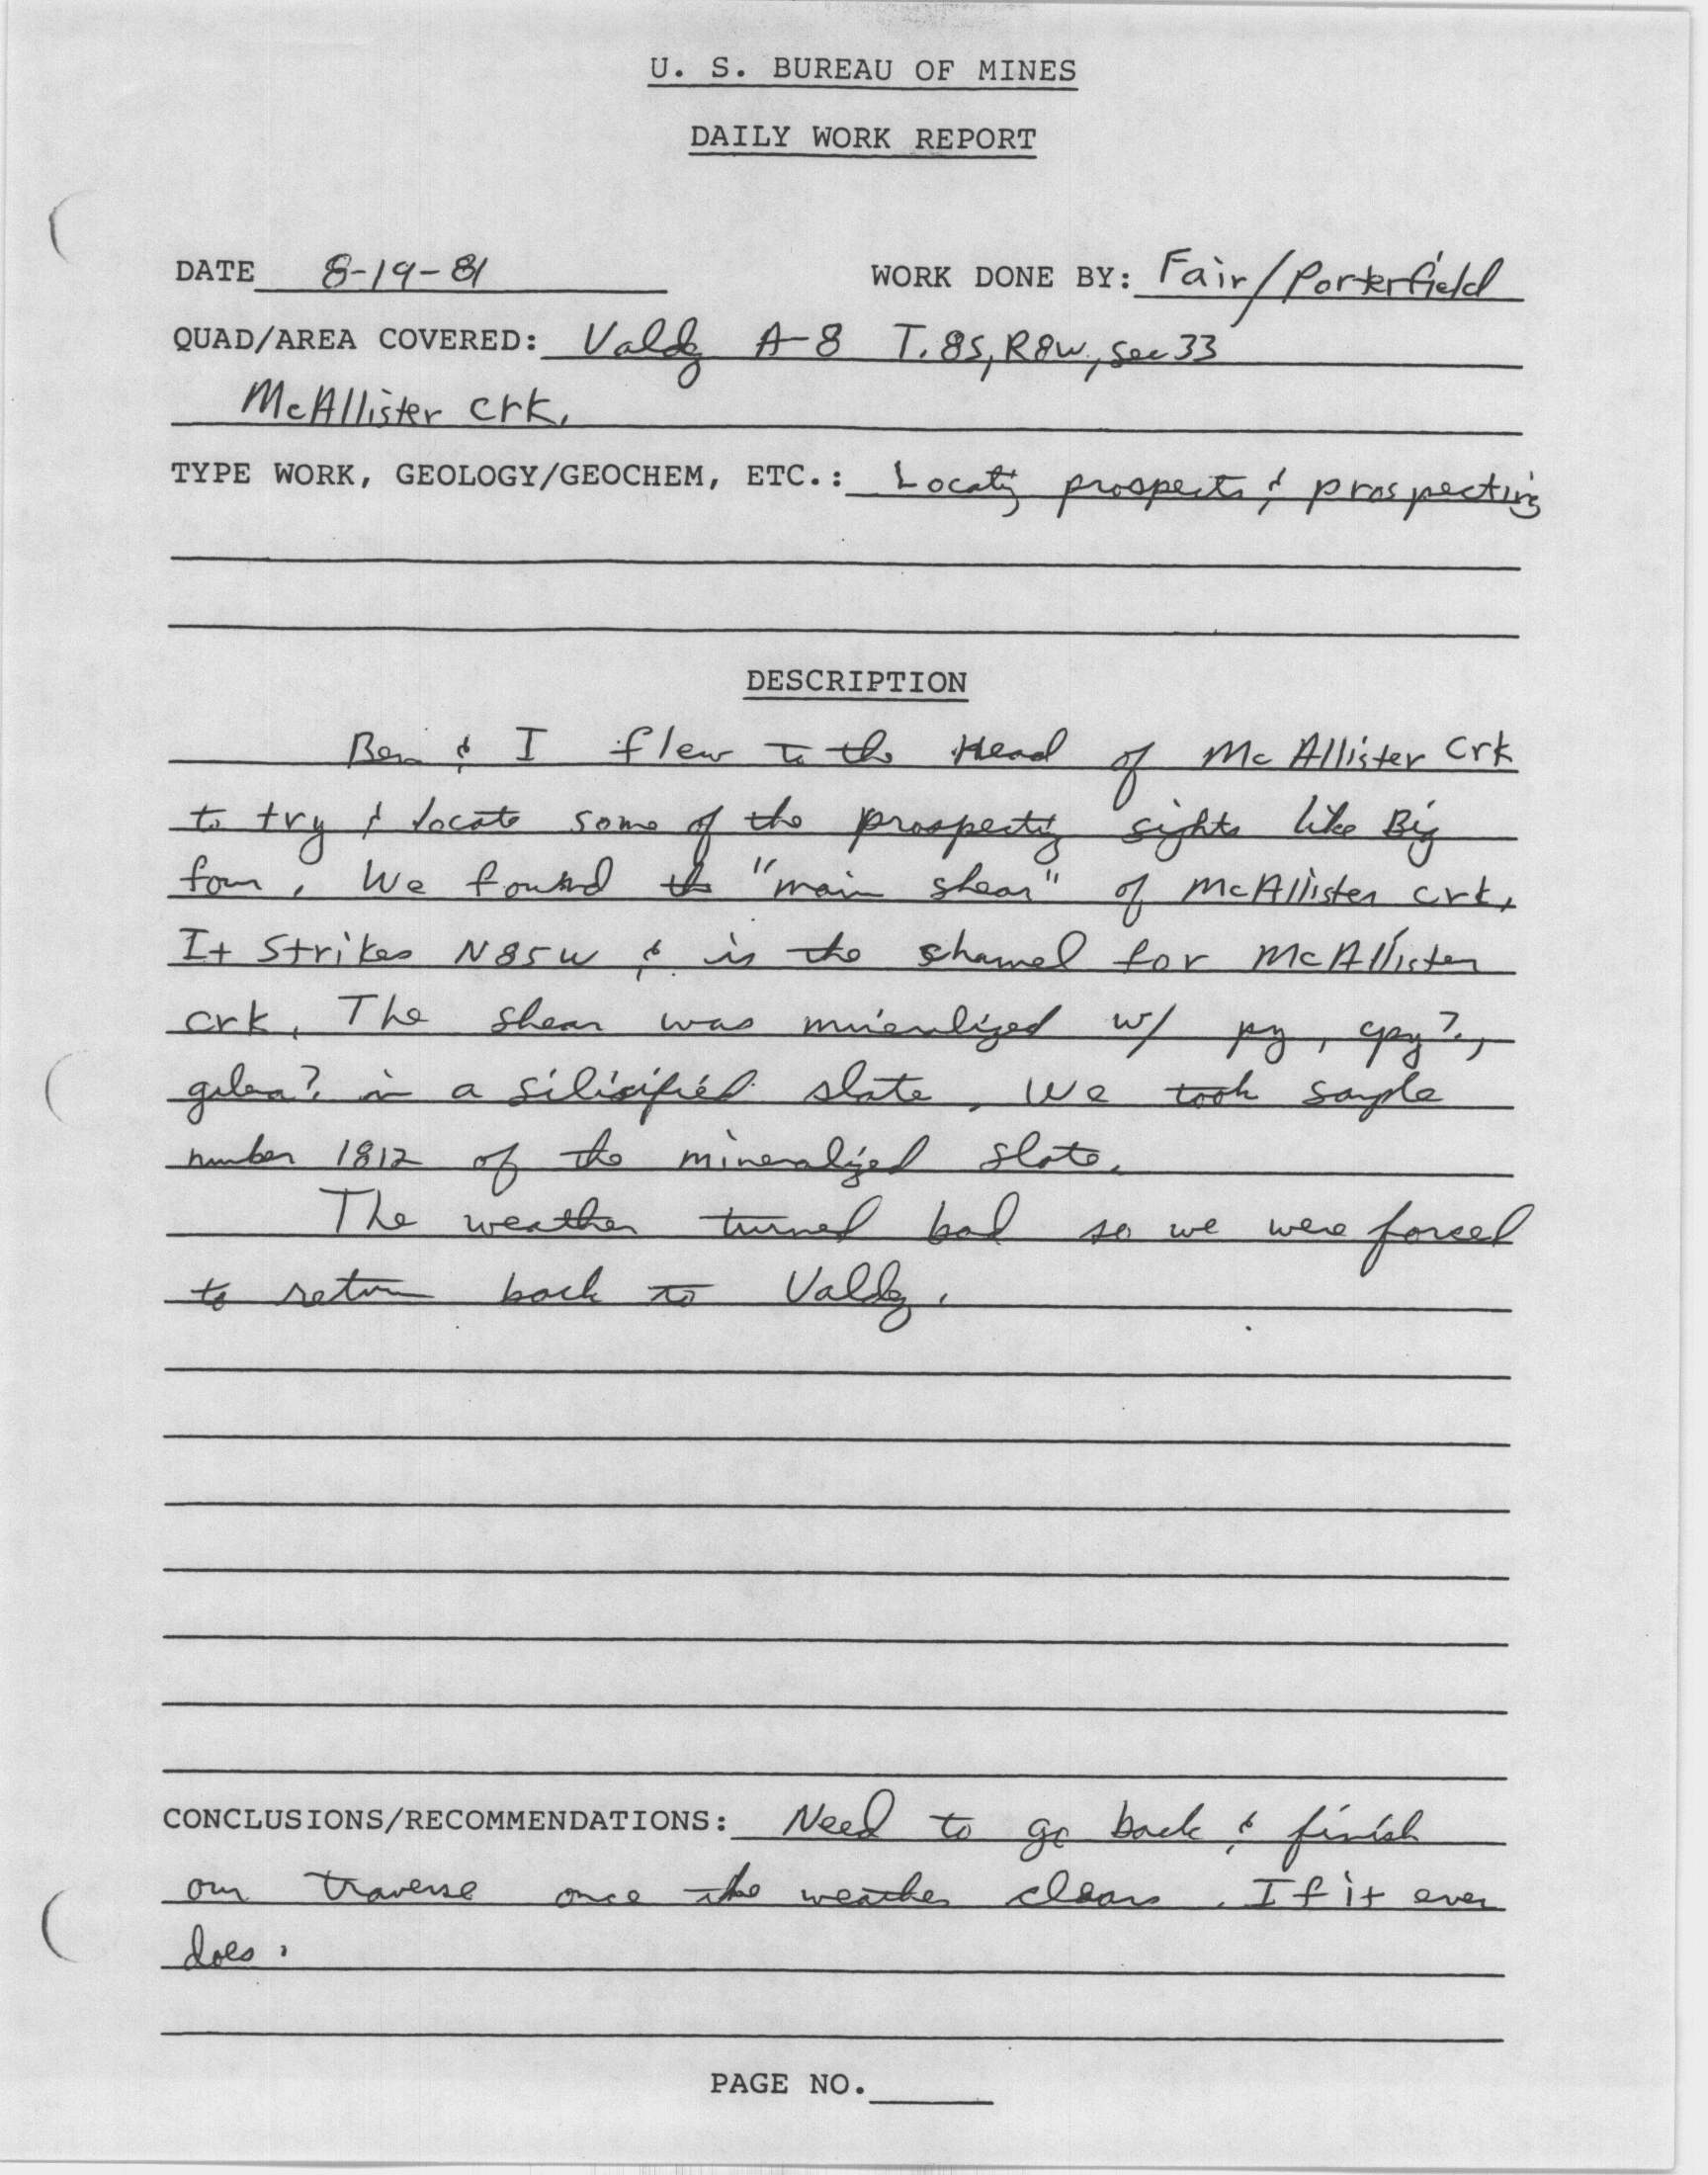 U. S. BUREAU OF MINES
DAILY WORK REPORT
DATE 8-19-81 WORK DONE BY: Fair/Porterfield
QUAD/AREA COVERED: Valdez A-8 T.8S, R8W, sec 33
McAllister crk.
TYPE WORK, GEOLOGY/GEOCHEM, ETC.: Locating prospects & prospecting
DESCRIPTION
Ben & I flew to the Head of McAllister Crk
to try & locate some of the prospecting sights like Big
four. We found the "main shear" of McAllister crk.
It strikes N85W & is the channel for McAllister
crk. The shear was mineralized w/ py, cpy?,
galena? in a silicified slate. We took sample
number 1812 of the mineralized slate.
The weather turned bad so we were forced
to return back to Valdez.
CONCLUSIONS/RECOMMENDATIONS: Need to go back & finish
our traverse once the weather clears. If it ever
does.
PAGE NO.